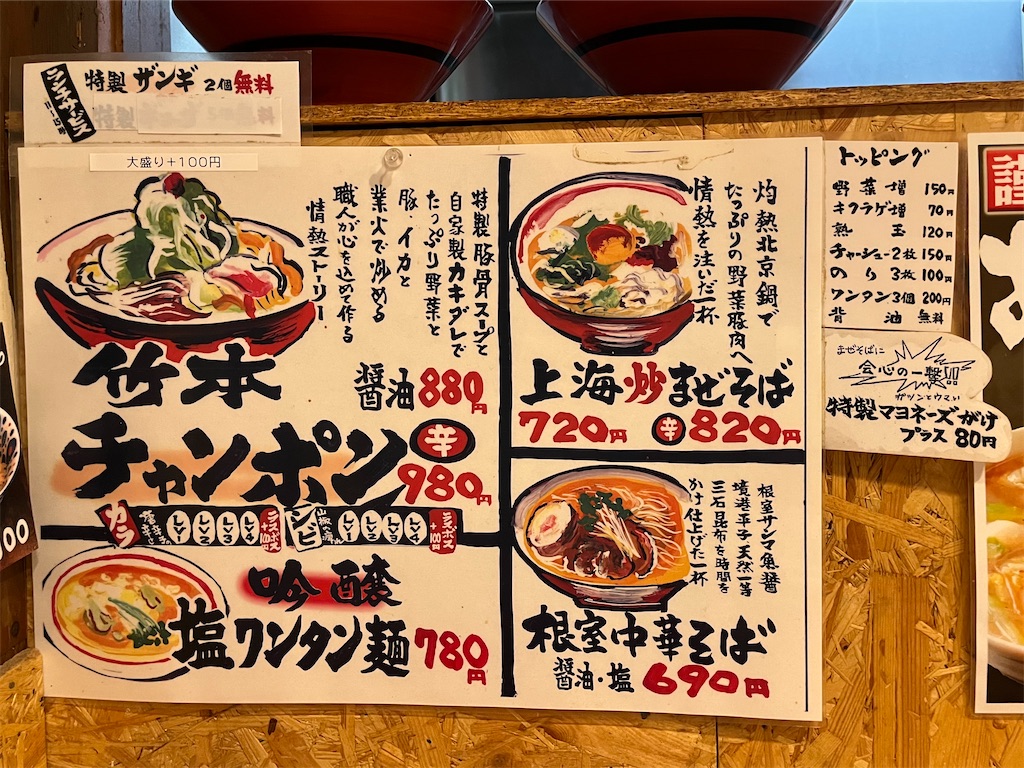 ランチサービス
特製 ザンギ 2個無料
大盛り+100円
特製豚骨スープと
自家製カキダレで
たっぷり野菜と
豚 イカと
業火で炒める
職人が心を込めて作る
情熱ストーリー
竹本
チャンポン
醤油 880円
辛 980円
カラ
レベ1
レベ2
レベ3
レベ4
ラスボス+100円
シビ
レベ1
レベ2
レベ3
レベ4
ラスボス+100円
吟醸
塩ワンタン麺 780円
灼熱北京鍋で
たっぷりの野菜豚肉へ
情熱を注いだ一杯
上海炒まぜそば
720円 辛 820円
根室サンマ魚醤
境港平子 天然一等
三石昆布を時間を
かけ仕上げた一杯
根室中華そば
醤油・塩 690円
トッピング
野菜増 150円
キクラゲ増 70円
熟玉 120円
チャーシュー2枚 150円
のり3枚 100円
ワンタン3個 200円
背油 無料
まぜそばに
会心の一撃!!
ガツンとウマい
特製マヨネーズがけ
プラス 80円
謹
00